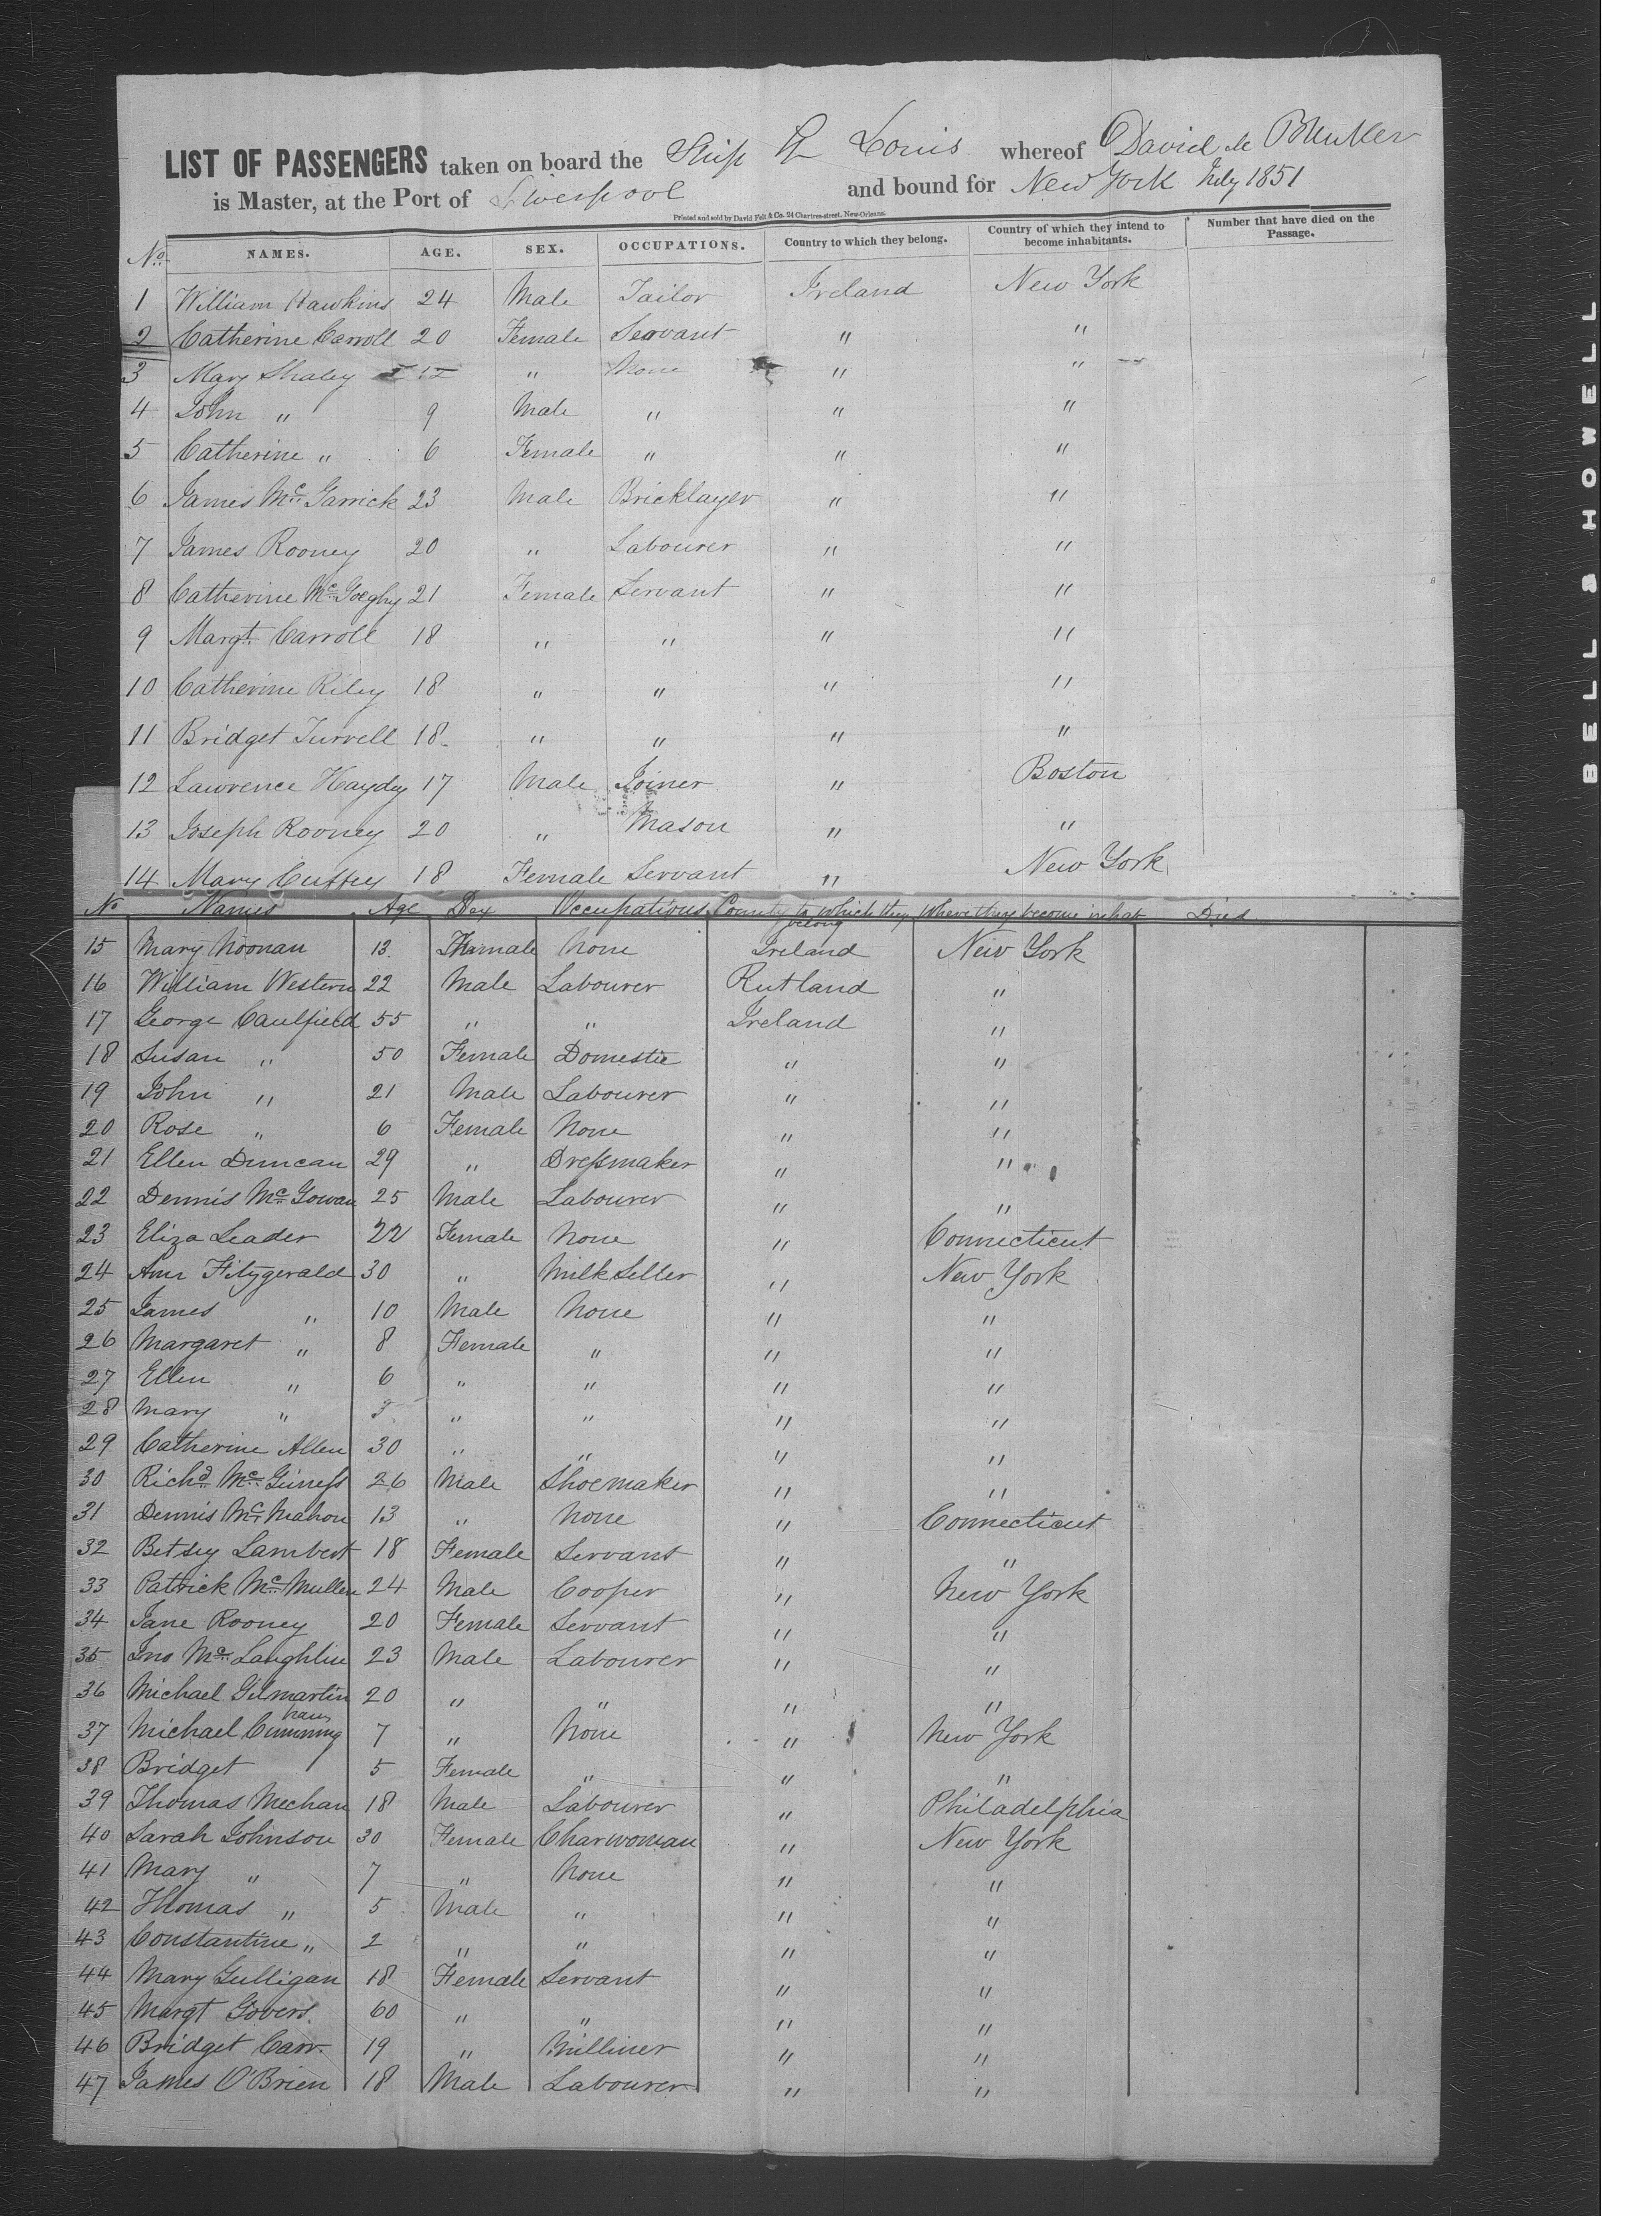 LIST OF PASSENGERS taken on board the Ship St Louis whereof David de
is Master, at the Port of Liverpool and bound for New York July 1851
Printed and sold by David Felt & Co. 24 Chartres-street, New-Orleans.
No. NAMES. AGE. SEX. OCCUPATIONS. Country to which they belong. Country of which they intend to become inhabitants. Number that have died on the Passage.
1 William Hawkins 24 Male Tailor Ireland New York
2 Catherine Carroll 20 Female Servant " "
3 Mary Shaley 12 " None " "
4 John " 9 Male " " "
5 Catherine " 6 Female " " "
6 James Mc Garrick 23 Male Bricklayer " "
7 James Rooney 20 " Labourer " "
8 Catherine 21 Female Servant " "
9 Margt. Carroll 18 " " " "
10 Catherine Riley 18 " " " "
11 Bridget Turvell 18 " " " "
12 Lawrence Haydy 17 Male Joiner " Boston
13 Joseph Rooney 20 " Mason " "
14 Mary Cuffey 18 Female Servant " New York
No Names Age Sex Occupations Country to which they belong Where they become inhab Died
15 Mary Noonan 13 Female None Ireland New York
16 William Western 22 Male Labourer Rutland "
17 George Caulfield 55 " " Ireland "
18 Susan " 50 Female Domestic " "
19 John " 21 Male Labourer " "
20 Rose " 6 Female None " "
21 Ellen Duncan 29 " Dressmaker " "
22 Dennis Mc Gowan 25 Male Labourer " "
23 Eliza Leader 22 Female None " Connecticut
24 Ann Fitzgerald 30 " Milk Seller " New York
25 James " 10 Male None " "
26 Margaret " 8 Female " " "
27 Ellen " 6 " " " "
28 Mary " 3 " " " "
29 Catherine Allen 30 " " " "
30 Richd Mc Giness 26 Male Shoemaker " "
31 Dennis Mc Mahon 13 " None " Connecticut
32 Betsey Lambert 18 Female Servant " "
33 Patrick Mc Mullen 24 Male Cooper " New York
34 Jane Rooney 20 Female Servant " "
35 Jno Mc Laughlin 23 Male Labourer " "
36 Michael Gilmartin 20 " " " "
37 Michael Cumming hans 7 " None " New York
38 Bridget 5 Female " " "
39 Thomas Mechan 18 Male Labourer " Philadelphia
40 Sarah Johnson 30 Female Charwoman " New York
41 Mary " 7 " None " "
42 Thomas " 5 Male " " "
43 Constantine " 2 " " " "
44 Mary Gulligan 18 Female Servant " "
45 Margt Govers. 60 " " " "
46 Bridget Carr. 19 " Milliner " "
47 James O'Brien 18 Male Labourer " "
BELL & HOWELL